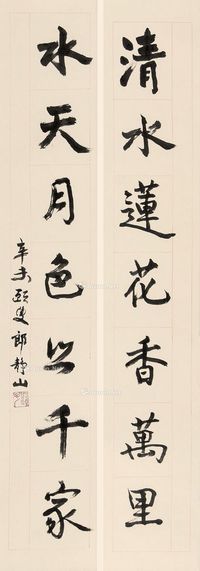 清水蓮花香萬里
水天月色千家
辛未 郎静山